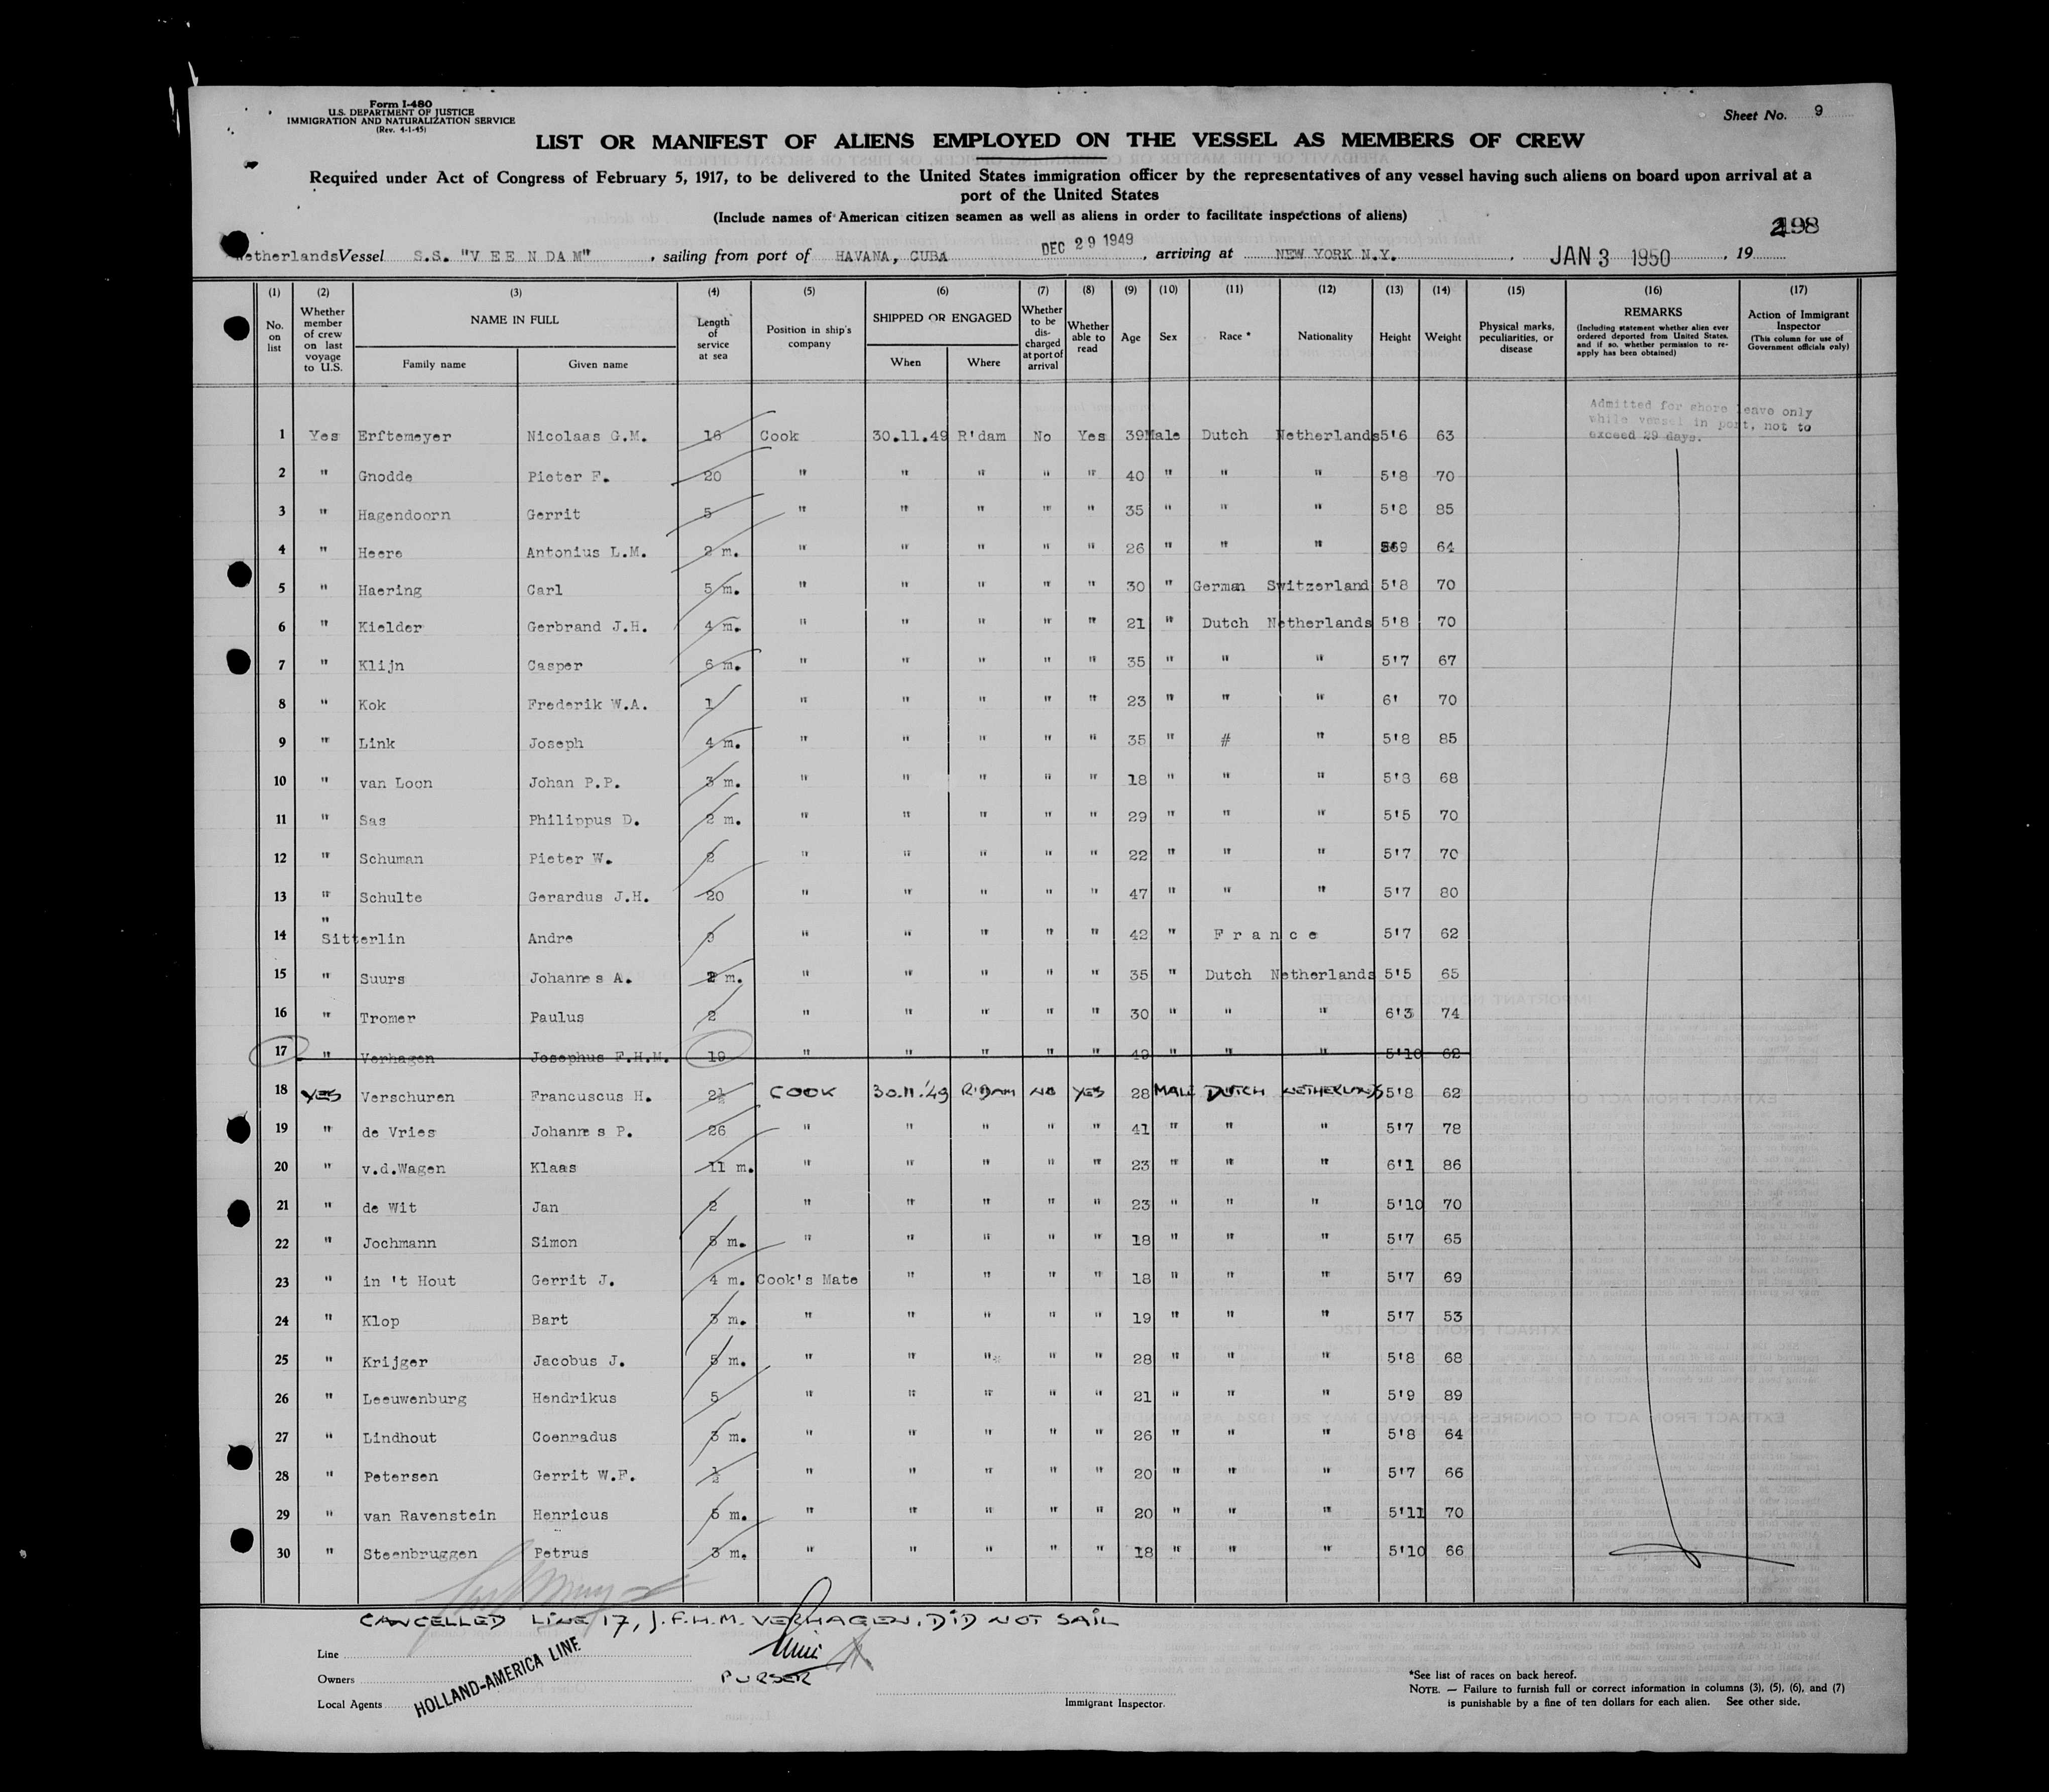 Form I-480
U.S. DEPARTMENT OF JUSTICE
IMMIGRATION AND NATURALIZATION SERVICE
(Rev. 4-1-45)
Sheet No. 9
LIST OR MANIFEST OF ALIENS EMPLOYED ON THE VESSEL AS MEMBERS OF CREW
Required under Act of Congress of February 5, 1917, to be delivered to the United States immigration officer by the representatives of any vessel having such aliens on board upon arrival at a
port of the United States
(Include names of American citizen seamen as well as aliens in order to facilitate inspections of aliens)
198
Netherlands Vessel S.S. "V E E N D A M" , sailing from port of HAVANA, CUBA DEC 29 1949 , arriving at NEW YORK N.Y. , JAN 3 1950 , 19
(1) (2) (3) (4) (5) (6) (7) (8) (9) (10) (11) (12) (13) (14) (15) (16) (17)
No. on list Whether member of crew on last voyage to U.S. NAME IN FULL Family name Given name Length of service at sea Position in ship's company SHIPPED OR ENGAGED When Where Whether to be discharged at port of arrival Whether able to read Age Sex Race * Nationality Height Weight Physical marks, peculiarities, or disease REMARKS (Including statement whether alien ever ordered deported from United States, and if so, whether permission to re-apply has been obtained) Action of Immigrant Inspector (This column for use of Government officials only)
Admitted for shore leave only
while vessel in port, not to
exceed 29 days.
1 Yes Erftemeyer Nicolaas G.M. 16 Cook 30.11.49 R'dam No Yes 39 Male Dutch Netherlands 5'6 63
2 " Gnodde Pieter F. 20 " " " " " 40 " " " 5'8 70
3 " Hagendoorn Gerrit 5 " " " " " 35 " " " 5'8 85
4 " Heere Antonius L.M. 2 m. " " " " " 26 " " " 5'9 64
5 " Haering Carl 5 m. " " " " " 30 " German Switzerland 5'8 70
6 " Kielder Gerbrand J.H. 4 m. " " " " " 21 " Dutch Netherlands 5'8 70
7 " Klijn Casper 6 m. " " " " " 35 " " " 5'7 67
8 " Kok Frederik W.A. 1 " " " " " 23 " " " 6' 70
9 " Link Joseph 4 m. " " " " " 35 " # " 5'8 85
10 " van Loon Johan P.P. 3 m. " " " " " 18 " " " 5'8 68
11 " Sas Philippus D. 2 m. " " " " " 29 " " " 5'5 70
12 " Schuman Pieter W. 2 " " " " " 22 " " " 5'7 70
13 " Schulte Gerardus J.H. 20 " " " " " 47 " " " 5'7 80
14 " Sitterlin Andre 9 " " " " " 42 " F r a n c e 5'7 62
15 " Suurs Johannes A. 2 m. " " " " " 35 " Dutch Netherlands 5'5 65
16 " Tromer Paulus 2 " " " " " 30 " " " 6'3 74
17 " Verhagen Josephus F.H.M. 19 " " " " " 49 " " " 5'10 62
18 YES Verschuren Francuscus H. 2½ COOK 30.11.'49 R'DAM NO YES 28 MALE DUTCH NETHERLANDS 5'8 62
19 " de Vries Johannes P. 26 " " " " " 41 " " " 5'7 78
20 " v.d.Wagen Klaas 11 m. " " " " " 23 " " " 6'1 86
21 " de Wit Jan 2 " " " " " 23 " " " 5'10 70
22 " Jochmann Simon 5 m. " " " " " 18 " " " 5'7 65
23 " in 't Hout Gerrit J. 4 m. Cook's Mate " " " " 18 " " " 5'7 69
24 " Klop Bart 3 m. " " " " " 19 " " " 5'7 53
25 " Krijger Jacobus J. 5 m. " " " " " 28 " " " 5'8 68
26 " Leeuwenburg Hendrikus 5 " " " " " 21 " " " 5'9 89
27 " Lindhout Coenradus 3 m. " " " " " 26 " " " 5'8 64
28 " Petersen Gerrit W.F. ½ " " " " " 20 " " " 5'7 66
29 " van Ravenstein Henricus 5 m. " " " " " 20 " " " 5'11 70
30 " Steenbruggen Petrus 3 m. " " " " " 18 " " " 5'10 66
CANCELLED LINE 17, J.F.H.M. VERHAGEN, DID NOT SAIL
Line
Owners
Local Agents
HOLLAND-AMERICA LINE.
PURSER
Immigrant Inspector.
*See list of races on back hereof.
NOTE. — Failure to furnish full or correct information in columns (3), (5), (6), and (7)
is punishable by a fine of ten dollars for each alien. See other side.